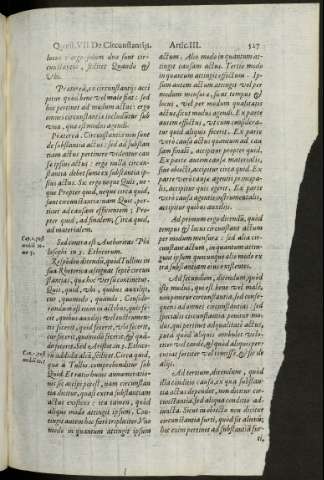 Quæst. VII De Circunstantijs. Artic. III. 527
locus: ergo soluu dua sunt cir-
cunstantiæ, scilicet Quando &
Vbi.
Præterea, ex circunstantijs acci
pitur quod bene vel male fiat: sed
hoc pertinet ad modum agendi. Er
omnes circunstantiæ includuntur sub
vna, quæ est modus agendi.
Præterea, Circunstantiæ non sunt
de substantia actus: sed ad substan
tiam actus pertinere videntur cau
sæ ipsius actus: ergo nulla circun-
stantia debet sumi ex substantia ip-
sius actus. Sic ergo neque Quis, ne-
que Propter quod, neque circa quid,
sunt circunstantiæ: nam Quis, per-
tinet ad causam efficientem; Pro-
pter quid, ad finalem; Circa quid,
ad materialem.
Sed contra est Authoritas Phi
losophi in 3. Ethicorum.
Respõdeo dicendũ, quòd Tullius in
sua Rhetorica assignat septẽ circun
stantias, quæ hoc versu continẽtur.
Quis, quid, vbi, quibus auxilijs,
cur, quomodo, quando. Conside-
randum est enim in actibus, quis fe-
cit, quibus auxilijs vel instrumen-
tis fecerit, quid fecerit, vbi fecerit,
cur fecerit, quomodo fecerit, & quã-
do fecerit. Sed Aristot. in 3. Ethico-
rũ addidit aliã, scilicet Circa quid,
quæ à Tullio comprehenditur sub
Quid. Et ratio huius annumeratio-
nis sic accipi potest, nam circunstan
tia dicitur, quasi extra substantiam
actus existens: ita tamen, quòd
aliquo modo attingit ipsum. Con-
tingit autem hoc fieri tripliciter. Vno
modo in quantum attingit ipsum
actum. Alio modo in quantum at-
tingit causam actus. Tertio modo
in quantum attingit effectum. Ip-
sum autem actum attingit vel per
modum mensuræ, sicut tempus &
locus, vel per modum qualitatis
actus, sicut modus agendi. Ex parte
autem effectus, vt cum considera-
tur quid aliquis fecerit. Ex parte
verò causæ actus quantum ad cau
sam finalẽ, accipitur propter quid.
Ex parte autem causæ materialis,
siue obiecti, accipitur circa quid. Ex
parte verò causæ agentis principa-
lis, accipitur quis egerit. Ex parte
verò causæ agentis instrumentalis,
accipitur quibus auxilijs.
Ad primum ergo dicendũ, quòd
tempus & locus circunstant actum
per modum mensuræ: sed alia cir-
cunstant actum, in quantum attin-
gunt ipsum quocunque alio modo ex
tra substantiam eius existentes.
Ad secundum, dicendum, quòd
iste modus, qui est bene vel male,
non ponitur circunstantia, sed conse-
quens ad omnes circunstantias. sed
specialis circunstantia ponitur mo-
dus, qui pertinet ad qualitatẽ actus,
putà quòd aliquis ambulet veloci-
ter vel tardè, & quòd aliquis per-
cutiat fortiter vel remissè, & sic de
alijs.
Ad tertium, dicendum, quòd
illa conditio causæ, ex qua substan-
tia actus dependet, non dicitur cir-
cunstantia, sed aliqua conditio ad-
iuncta. Sicut in obiecto non dicitur
circunstantia furti, quòd sit alienũ;
hoc enim pertinet ad substantiã fur-
ti,